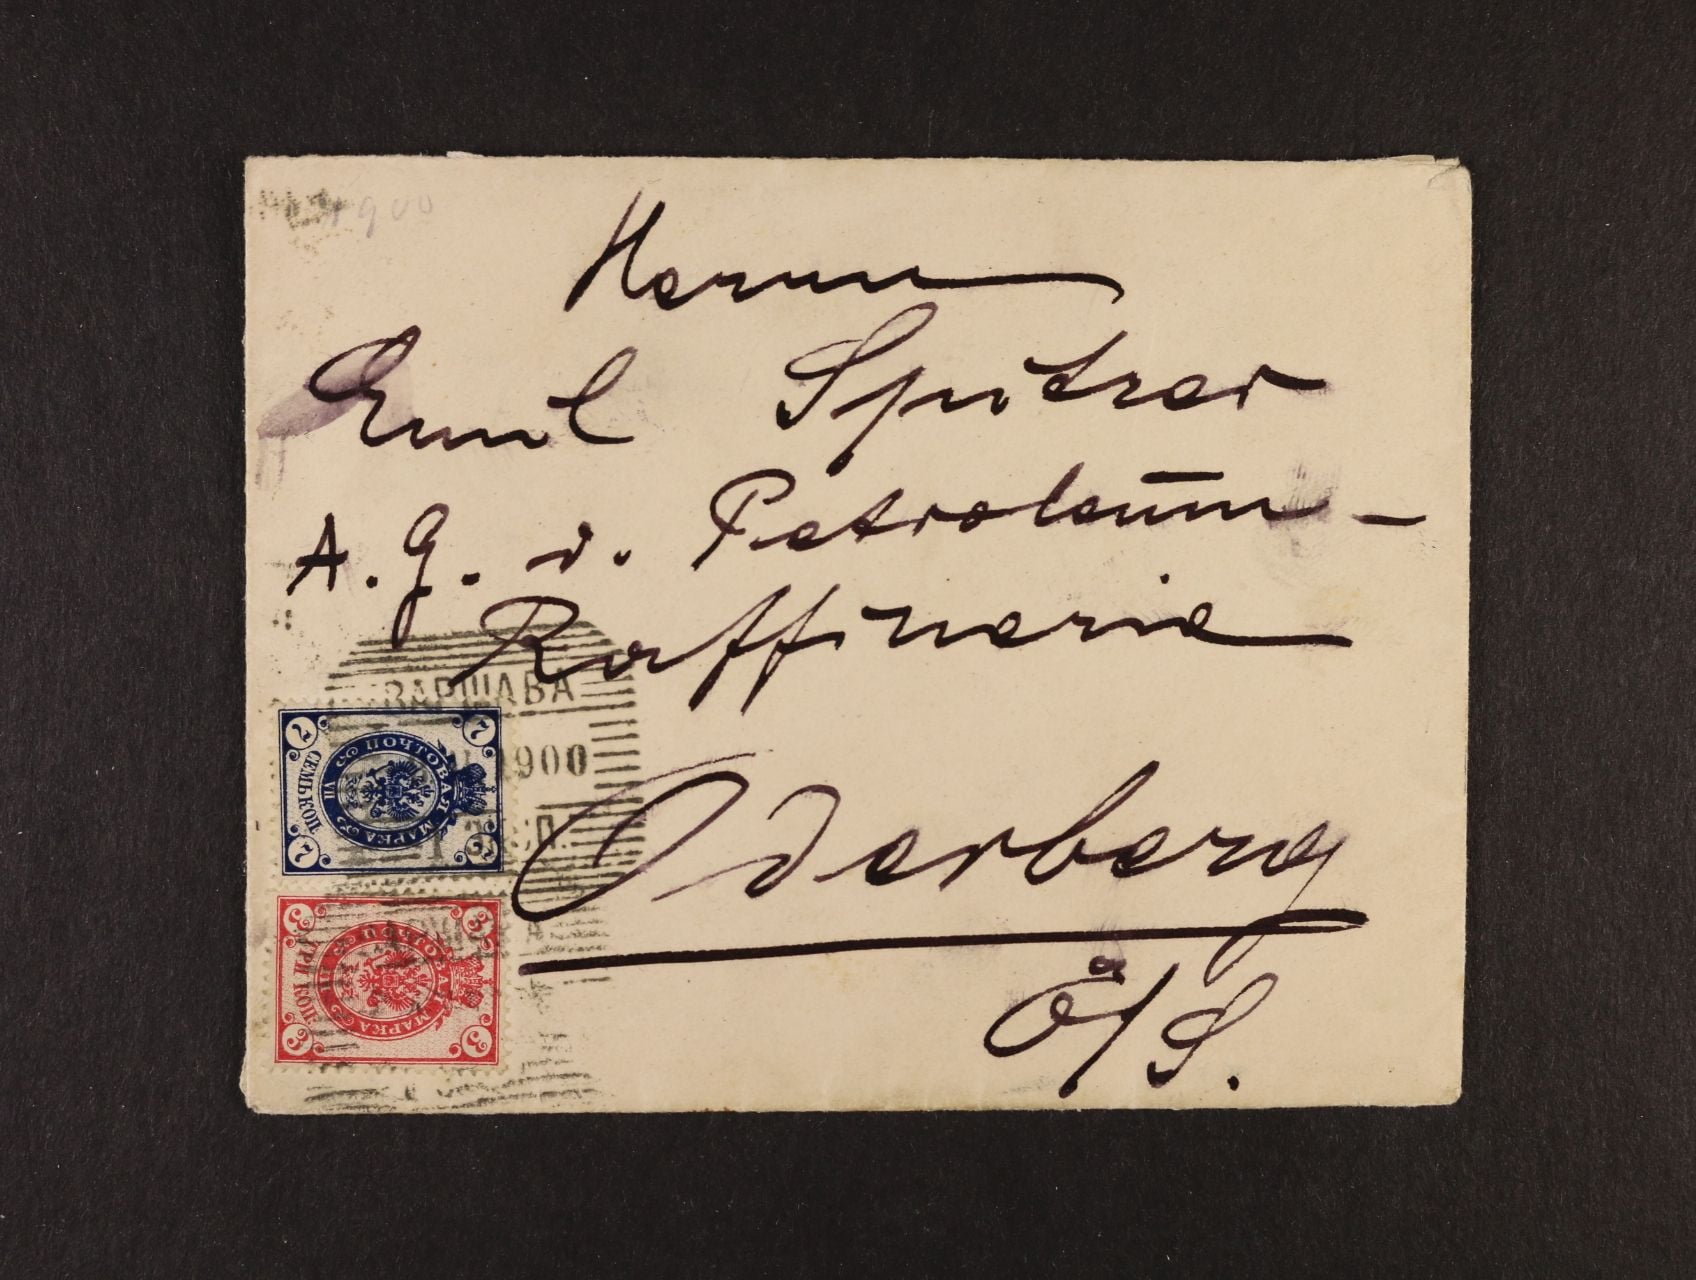 1900
Herrn
Emil Spitzer
A. G. d. Petroleum-
Raffinerie
Oderberg
Ö/S.
ВАРШАВА
1900
7 7 7 7
ПОЧТОВАЯ МАРКА
VII
СЕМЬ КОП.
3 3 3 3
ПОЧТОВАЯ МАРКА
III
ТРИ КОП.